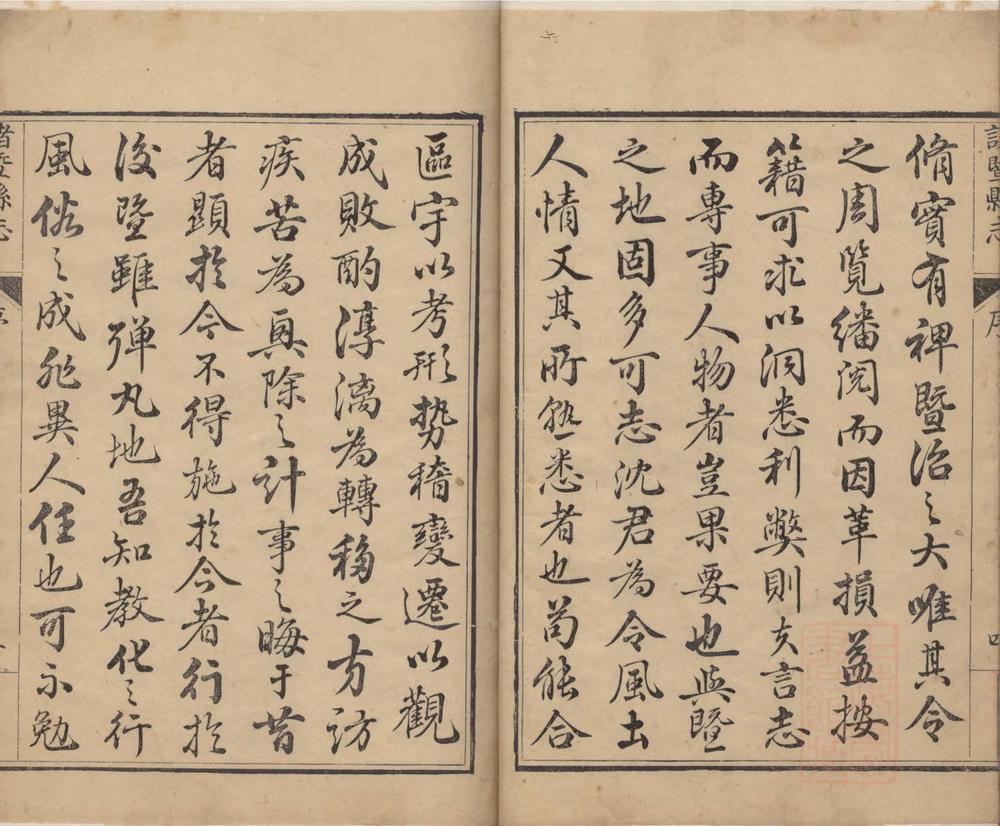 脩實有裨暨治之大唯其令
之周覽繙閱而因革損益按
籍可求以洞悉利弊則夫言志
而專事人物者豈果要也與暨
之地固多可志沈君為令風土
人情又其所熟悉者也苟能合
區宇以考形勢稽變遷以觀
成敗酌淳漓為轉移之方訪
疾苦為興除之計事之晦于昔
者顯於今不得施於今者行於
後暨雖彈丸地吾知教化之行
風俗之成非異人任也可不勉
諸暨縣志
序